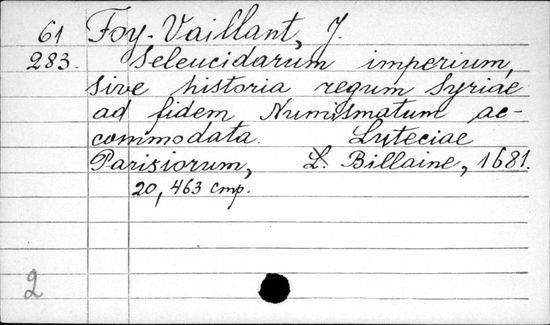 61 Foy-Vaillant, J.
283. Seleucidarum imperium,
sive historia regum Syriae
ad fidem Numismatum ac-
commodata. Luteciae
Parisiorum, L. Billaine, 1681.
20, 463 стр.
2